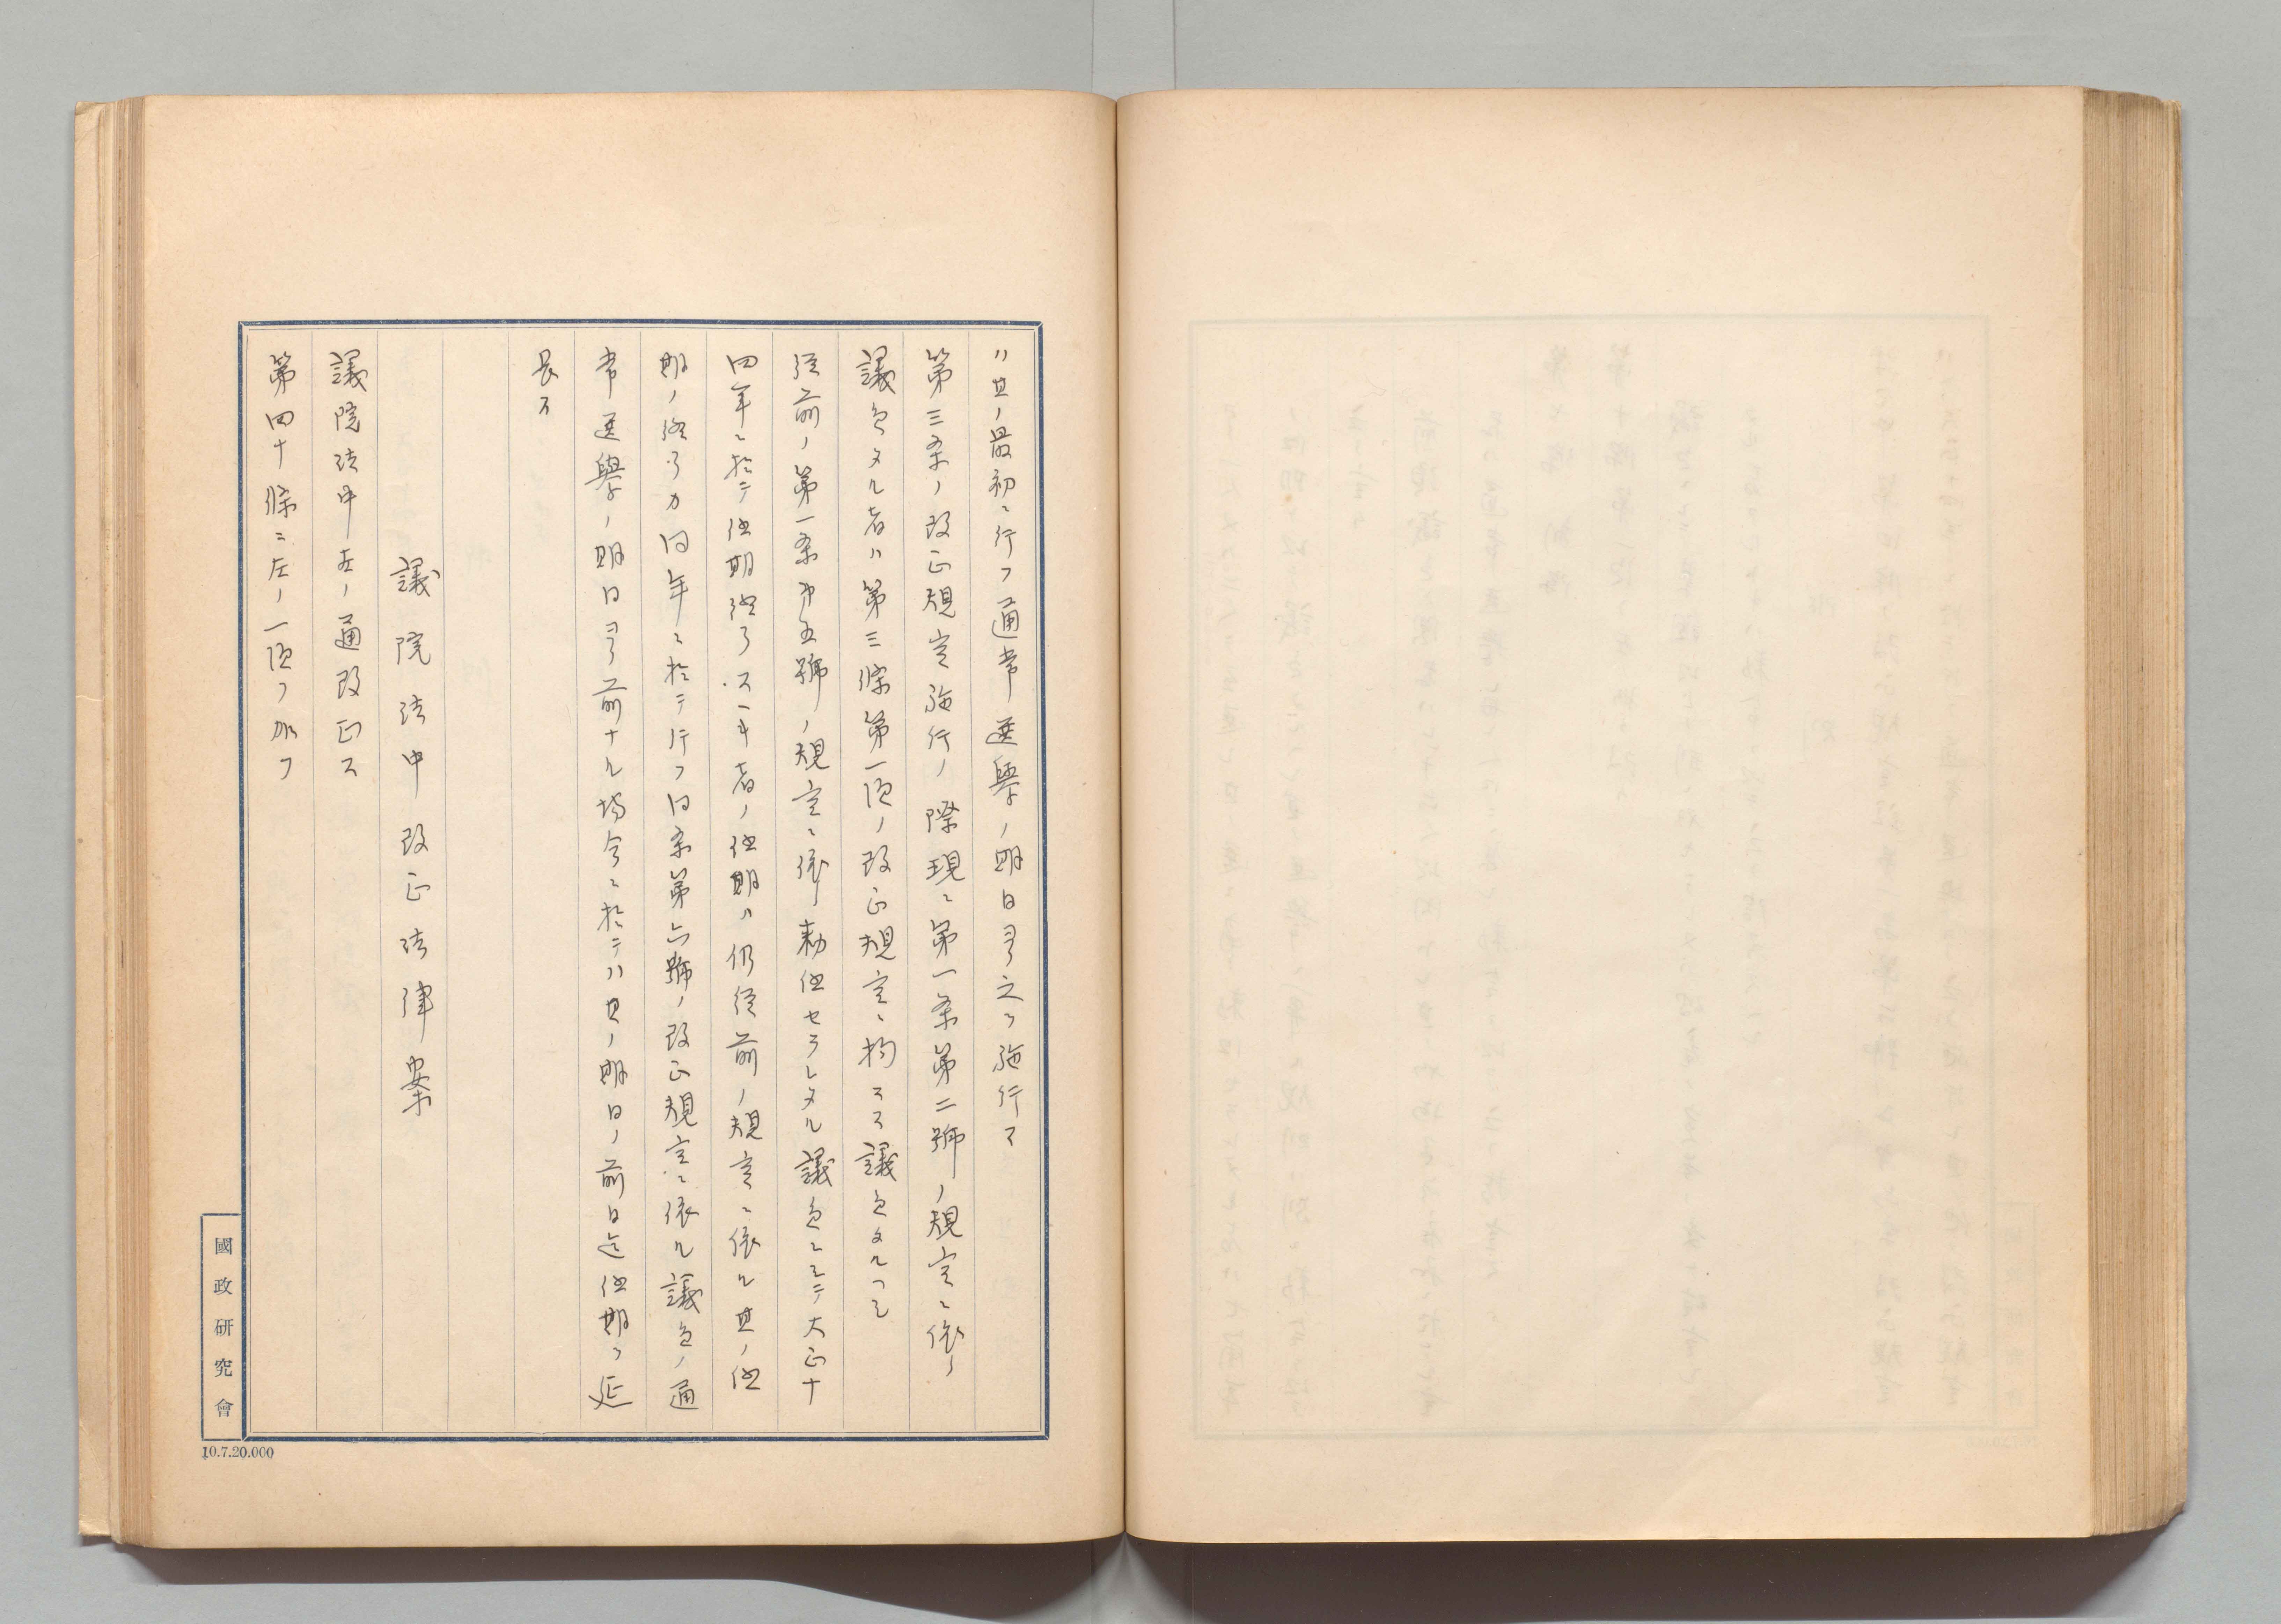 ハ其ノ最初ニ行フ通常選擧ノ期日ヨリ之ヲ施行ス
第三条ノ改正規定施行ノ際現ニ第一条第二號ノ規定ニ依リ
議員タル者ハ第三條第一項ノ改正規定ニ拘ラス議員タルヘシ
從前ノ第一条第五號ノ規定ニ依リ勅任セラレタル議員ニシテ大正十
四年ニ於テ任期終了スヘキ者ノ任期ハ仍從前ノ規定ニ依ル其ノ任
期ノ終了カ同年ニ於テ行フ同条第六號ノ改正規定ニ依ル議員ノ通
常選擧ノ期日ヨリ前ナル場合ニ於テハ其ノ期日ノ前日迄任期ヲ延
長ス
議院法中改正法律案
議院法中左ノ通改正ス
第四十條ニ左ノ一項ヲ加フ
國政研究會
10.7.20.000